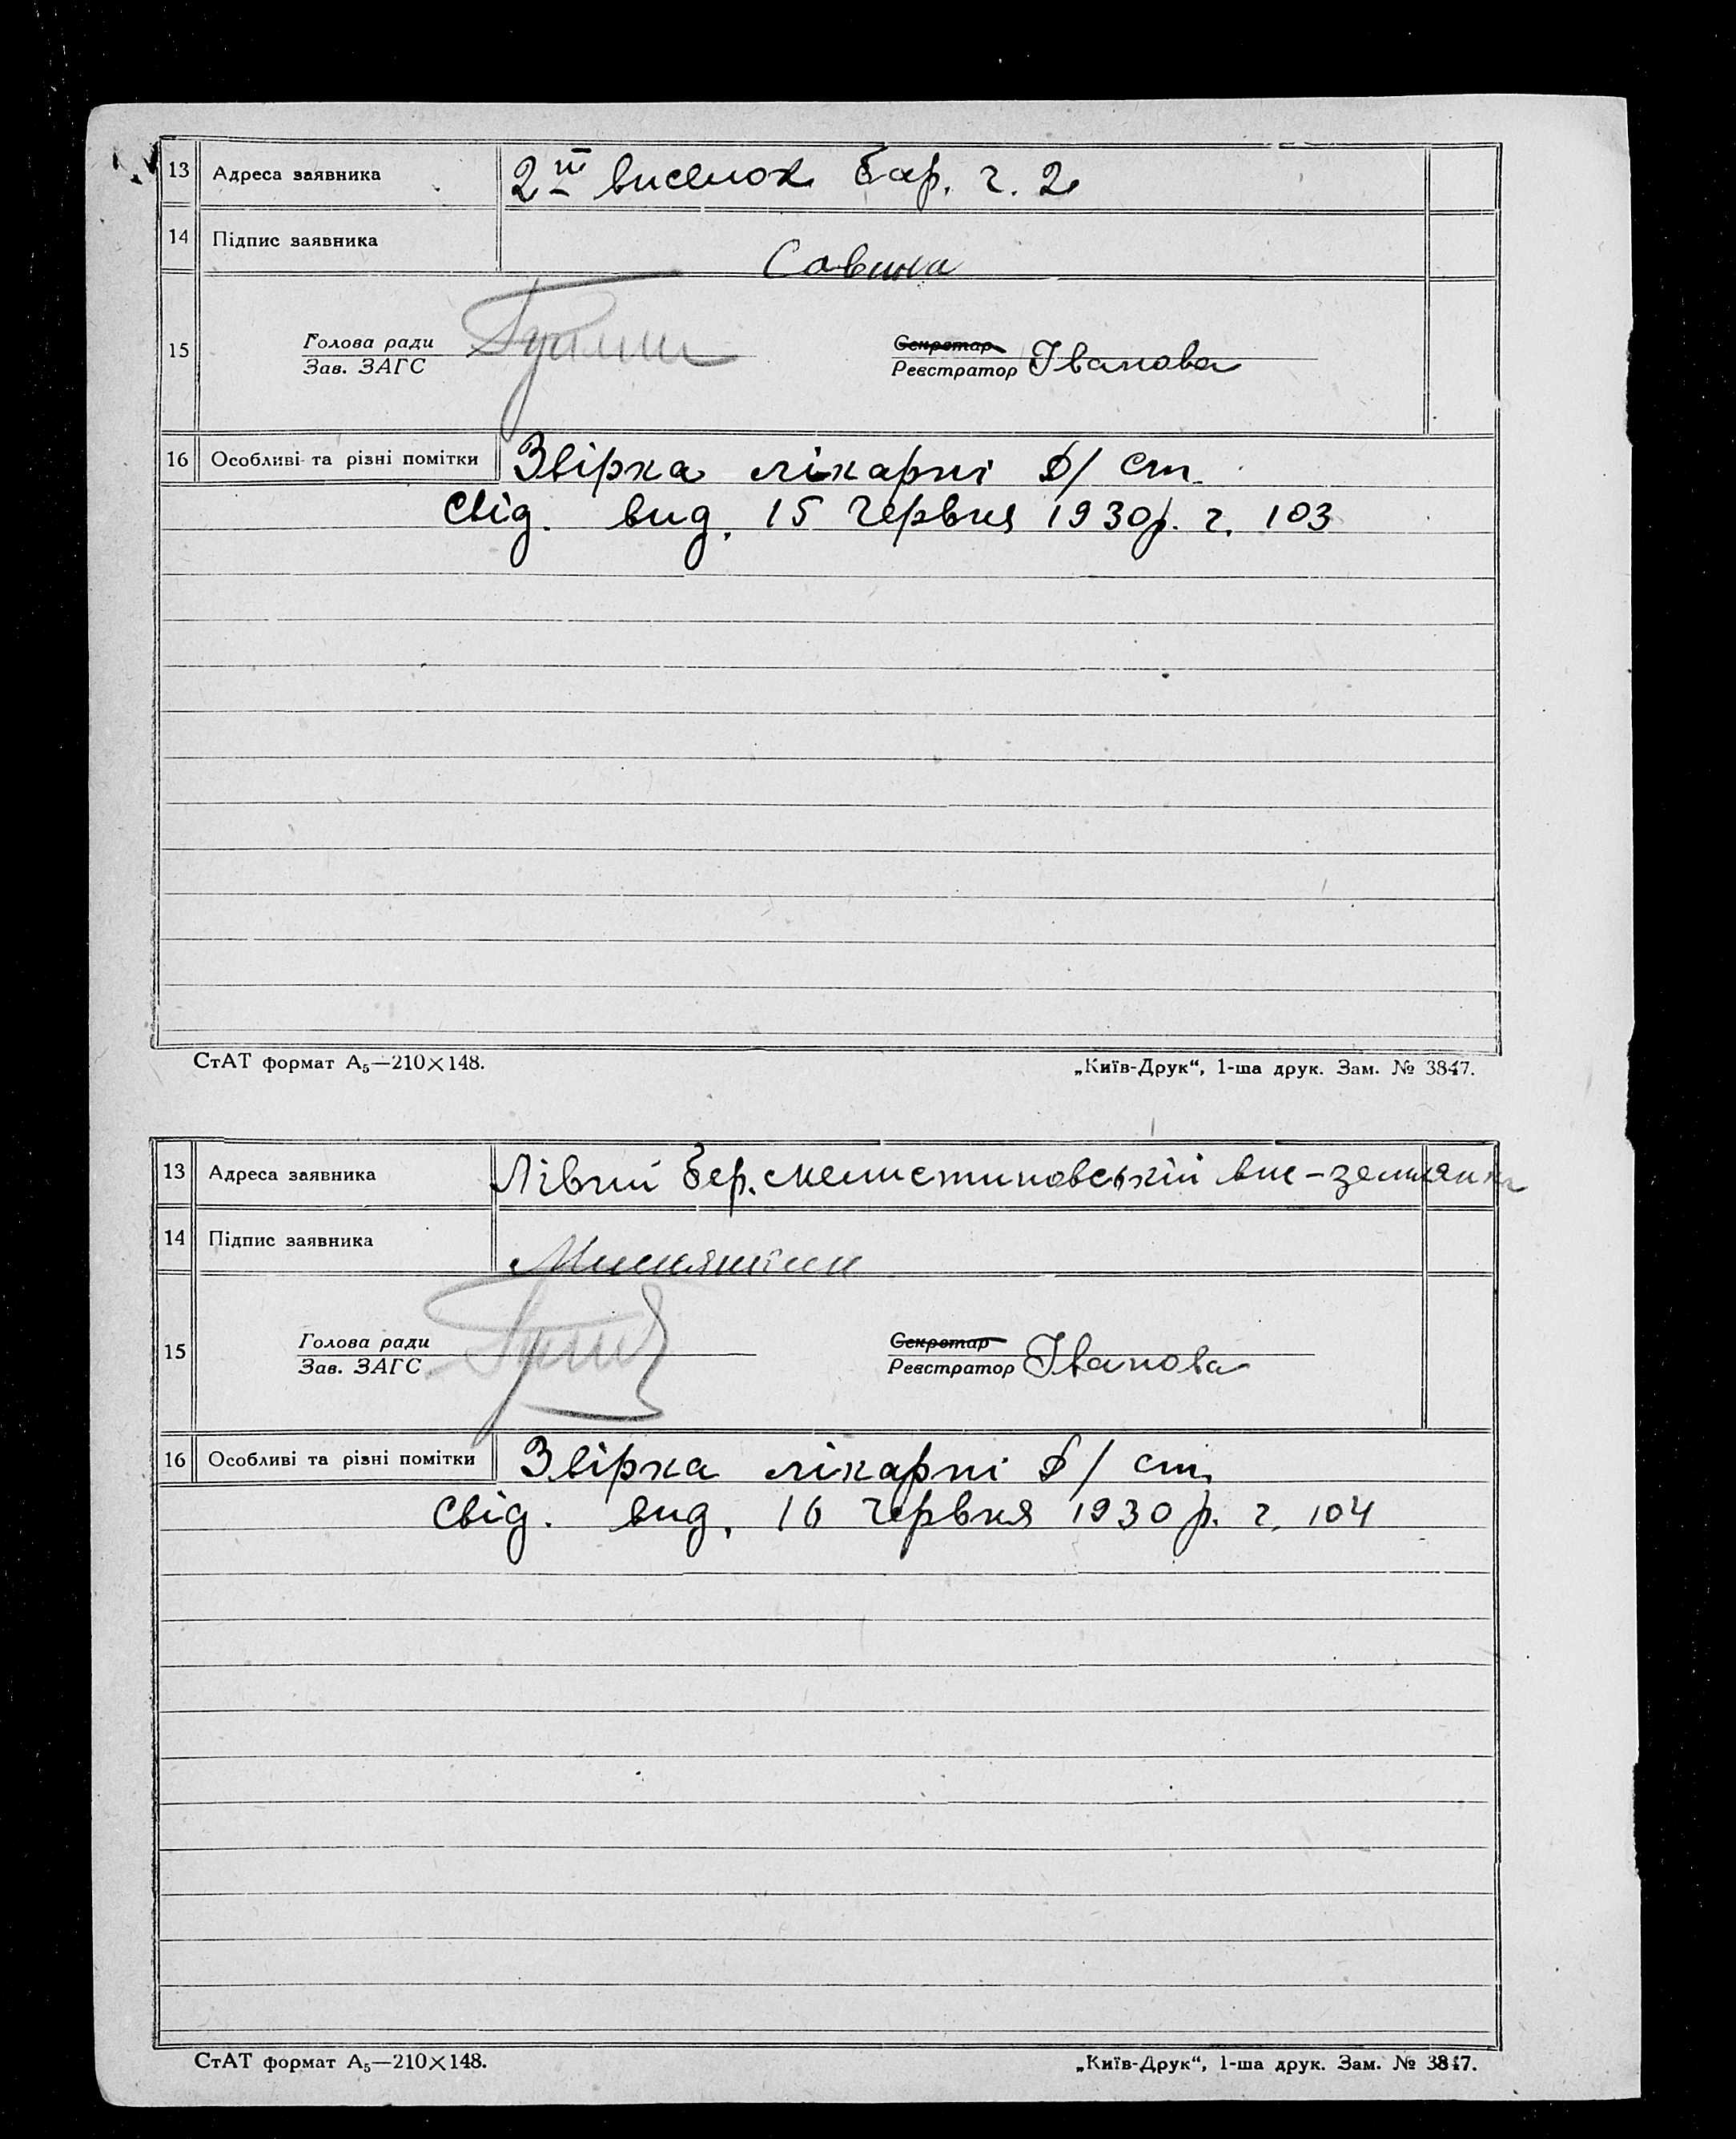 13 Адреса заявника 2ий виселок бар. ч. 2
14 Підпис заявника Савина
15 Голова ради Секретар
Зав. ЗАГС Реєстратор Іванова
16 Особливі та різні помітки Звірка лікарні д/ ст.
Свід. вид. 15 Червня 1930р. ч. 103
СтАТ формат А5—210×148. „Київ-Друк“, 1-ша друк. Зам. № 3847.
13 Адреса заявника Лівий бер. вис-землянка
14 Підпис заявника
15 Голова ради Секретар
Зав. ЗАГС Реєстратор Іванова
16 Особливі та різні помітки Звірка лікарні д/ ст.
Свід. вид. 16 Червня 1930 р. ч. 104
СтАТ формат А5—210×148. „Київ-Друк“, 1-ша друк. Зам. № 3847.